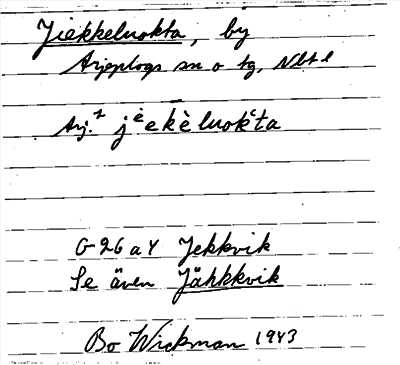 Jiekkeluokta, by
Arjeplogs sn o tg, Nbt l
Arj.¹ jèekèluokʽta
G 26 a Y Jekkvik
Se även Jähkkvik
Bo Wickman 1943